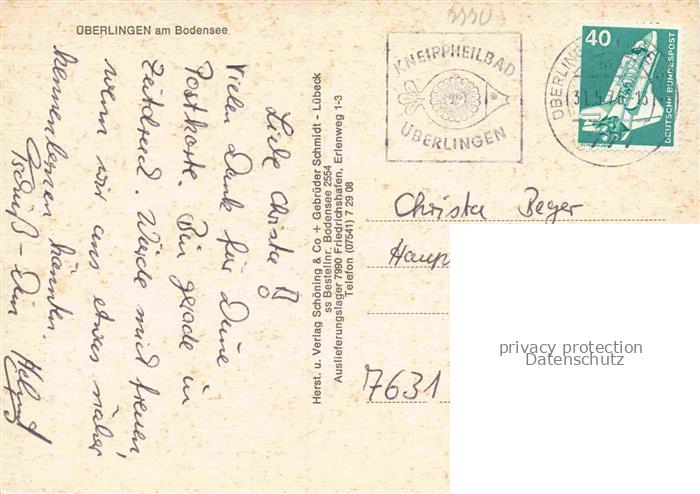 ÜBERLINGEN am Bodensee
Liebe Christa!
Vielen Dank für Deine
Postkarte. Bin gerade in
Zeitdruck. Würde mich freuen,
wenn wir uns etwas näher
kennenlernen könnten.
Tschüß - Dein Helmut
Herst. u. Verlag Schöning & Co + Gebrüder Schmidt - Lübeck
ss Bestellnr. Bodensee 2554
Auslieferungslager 7990 Friedrichshafen, Erlenweg 1-3
Telefon (07541) 7 29 08
KNEIPPHEILBAD
ÜBERLINGEN
ÜBERLING
31.5.
40
DEUTSCHE BUNDESPOST
Christa Beyer
Haup
7631
privacy protection
Datenschutz